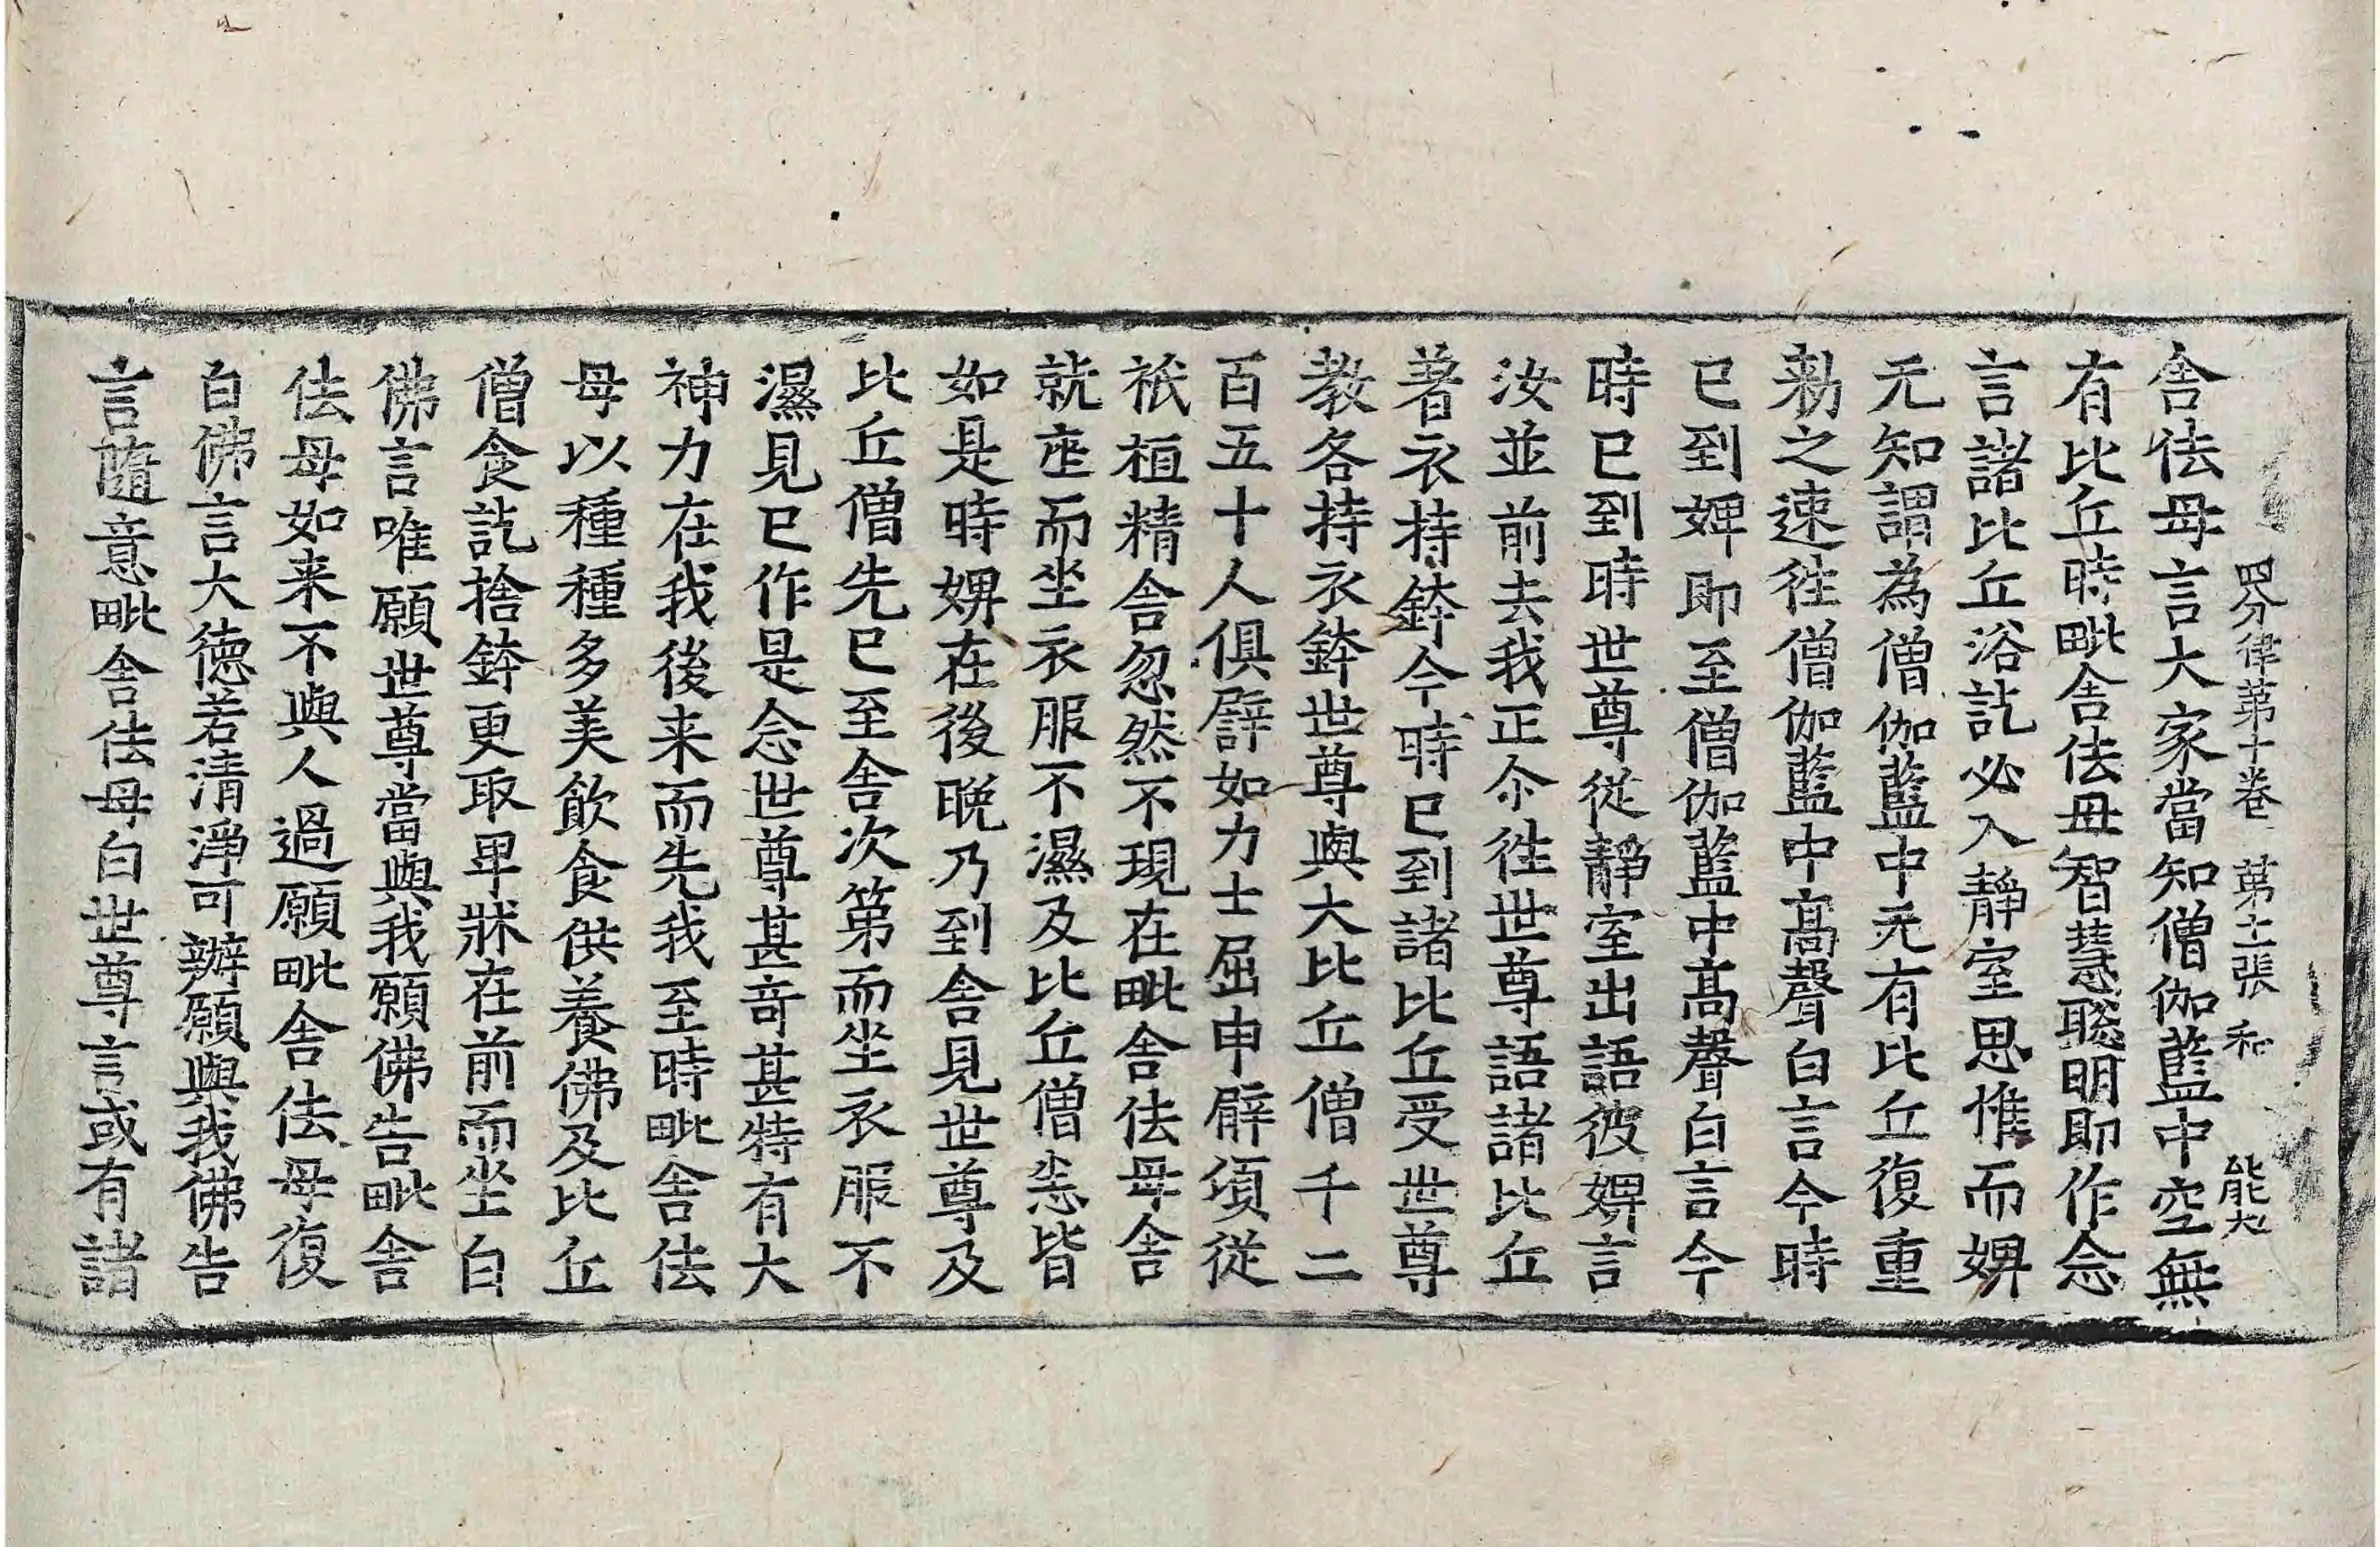 四分律第十卷 第十二張 和 能大
舎佉母言大家當知僧伽藍中空無
有比丘時毗舎佉母智慧聡明即作念
言諸比丘浴訖必入靜室思惟而婢
无知謂為僧伽藍中无有比丘復重
勑之速徃僧伽藍中髙聲白言今時
已到婢即至僧伽藍中髙聲白言今
時已到時世尊從靜室出語彼婢言
汝並前去我正尒徃世尊語諸比丘
著衣持鉢今時已到諸比丘受世尊
教各持衣鉢世尊與大比丘僧千二
百五十人俱譬如力士屈申臂頃從
祇桓精舎忽然不現在毗舎佉母舎
就座而坐衣服不濕及比丘僧悉皆
如是時婢在後晚乃到舎見世尊及
比丘僧先已至舎次第而坐衣服不
濕見已作是念世尊甚竒甚特有大
神力在我後来而先我至時毗舎佉
母以種種多美飲食供養佛及比丘
僧食訖捨鉢更取卑牀在前而坐白
佛言唯願世尊當與我願佛告毗舎
佉母如来不與人過願毗舎佉母復
白佛言大徳若清淨可辦願與我佛告
言隨意毗舎佉母白世尊言或有諸